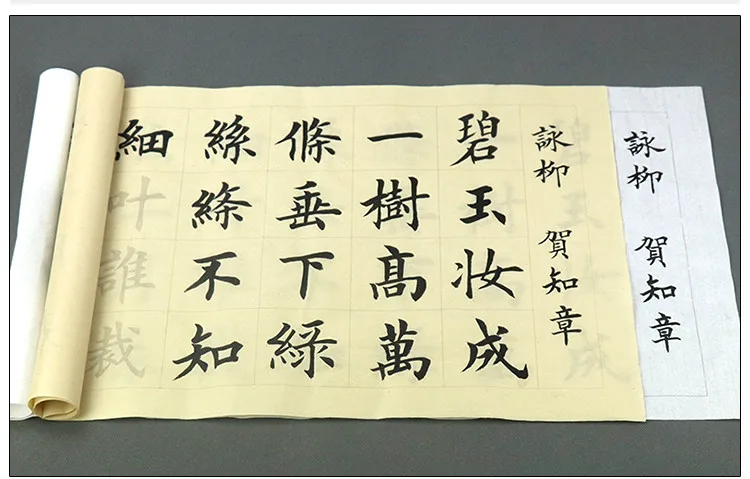 詠柳 賀知章
詠柳 賀知章
碧玉妆成
一樹髙萬
條垂下緑
絲絛不知
細叶誰裁